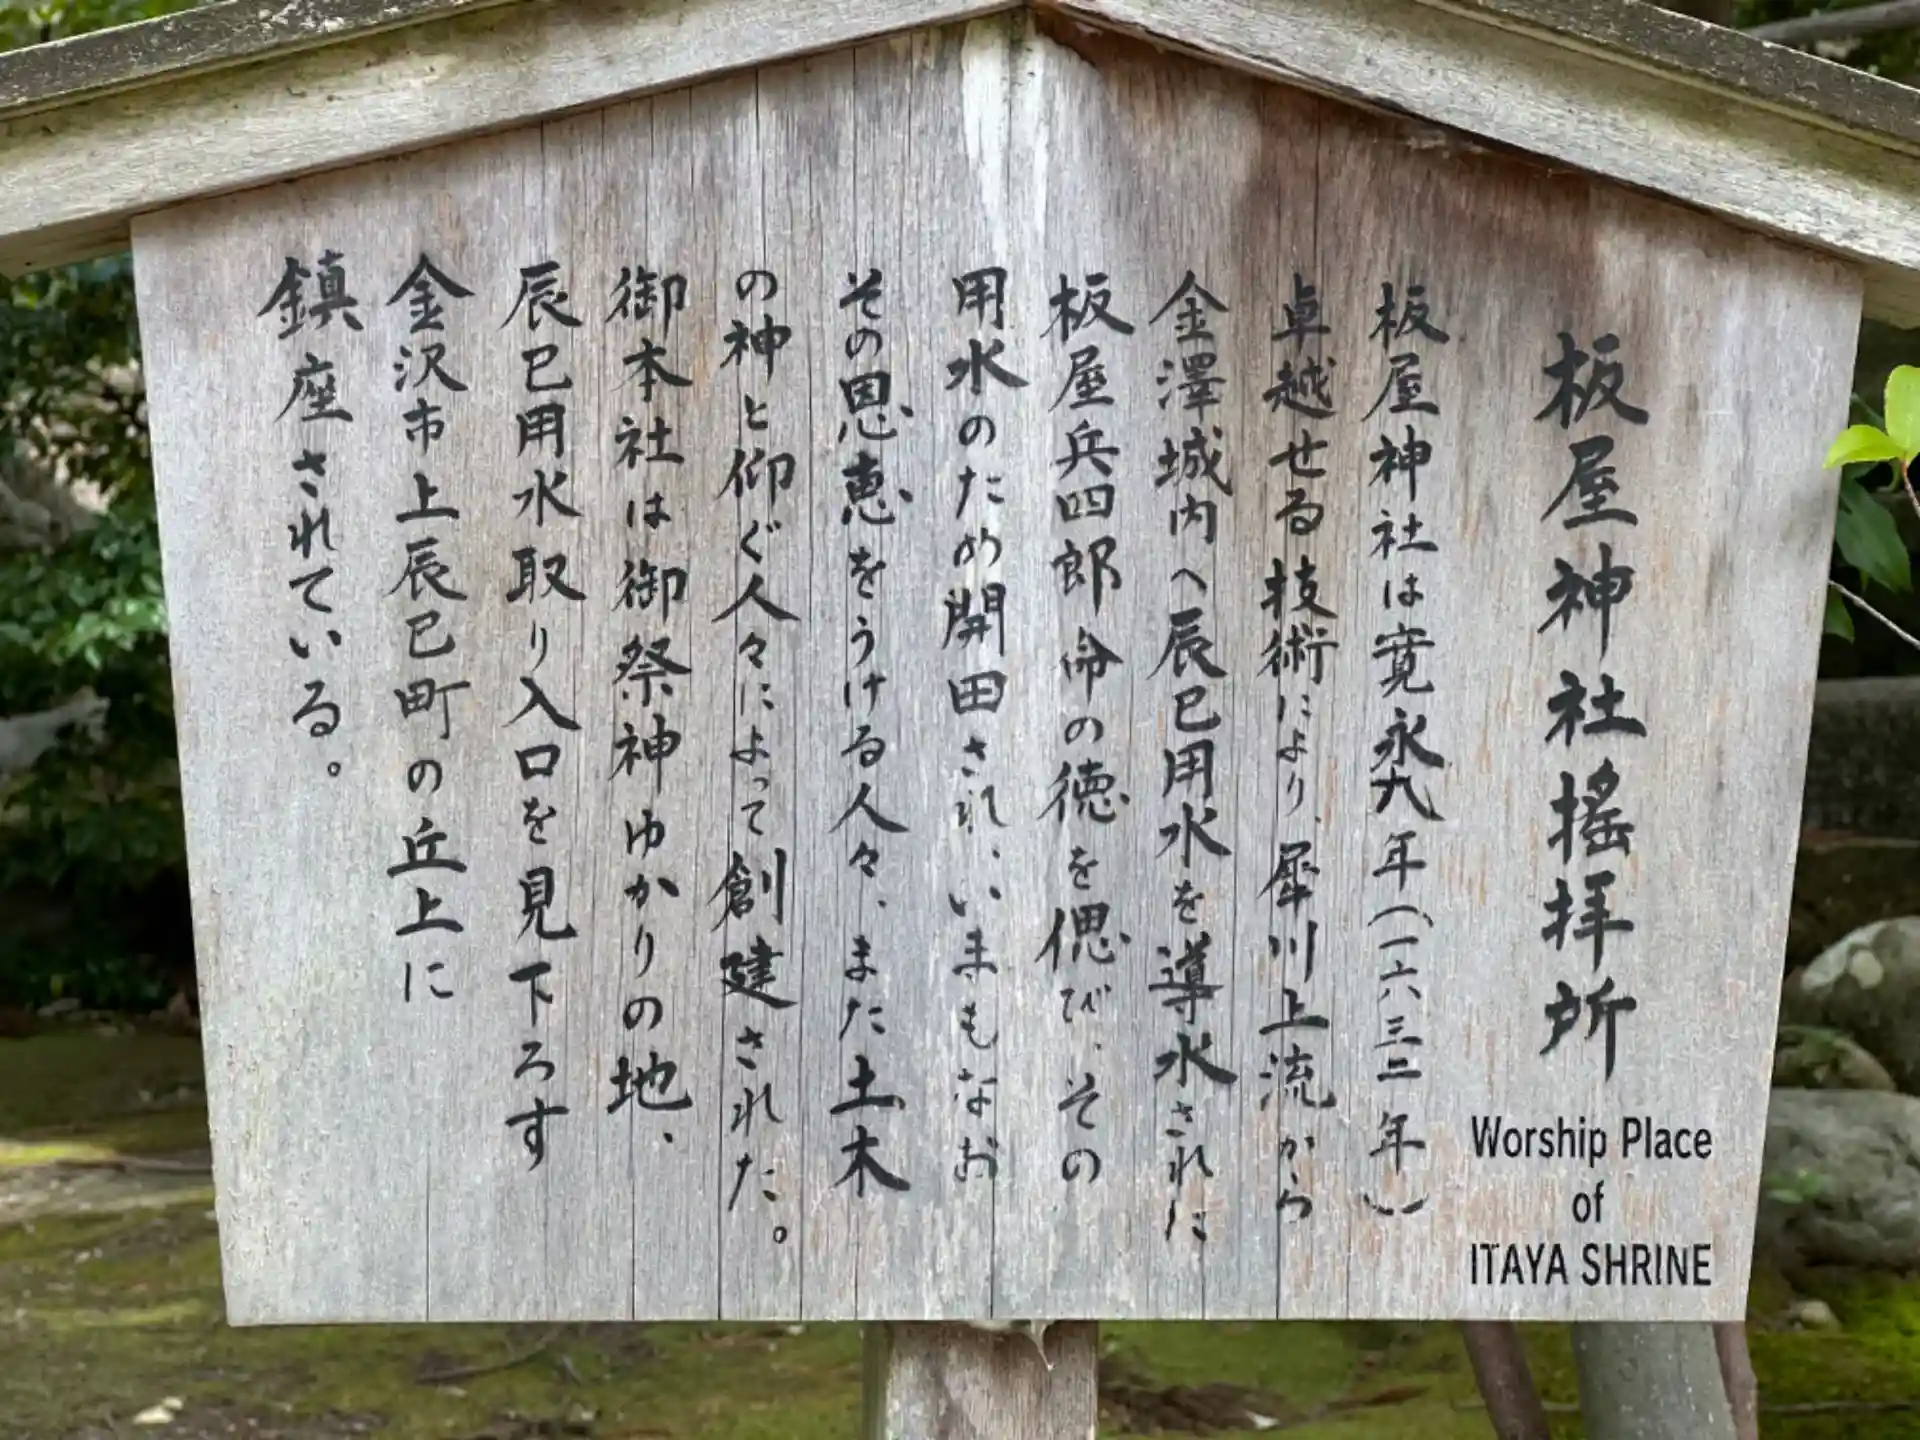 板屋神社搖拝所
Worship Place
of
ITAYA SHRINE
板屋神社は寛永九年(一六三二年)
卓越せる技術により、犀川上流から
金澤城内へ辰巳用水を導水された
板屋兵四郎命の徳を偲び、その
用水のため開田され、いまもなお
その恩恵をうける人々、また土木
の神と仰ぐ人々によって創建された。
御本社は御祭神ゆかりの地、
辰巳用水取り入口を見下ろす
金沢市上辰巳町の丘上に
鎮座されている。